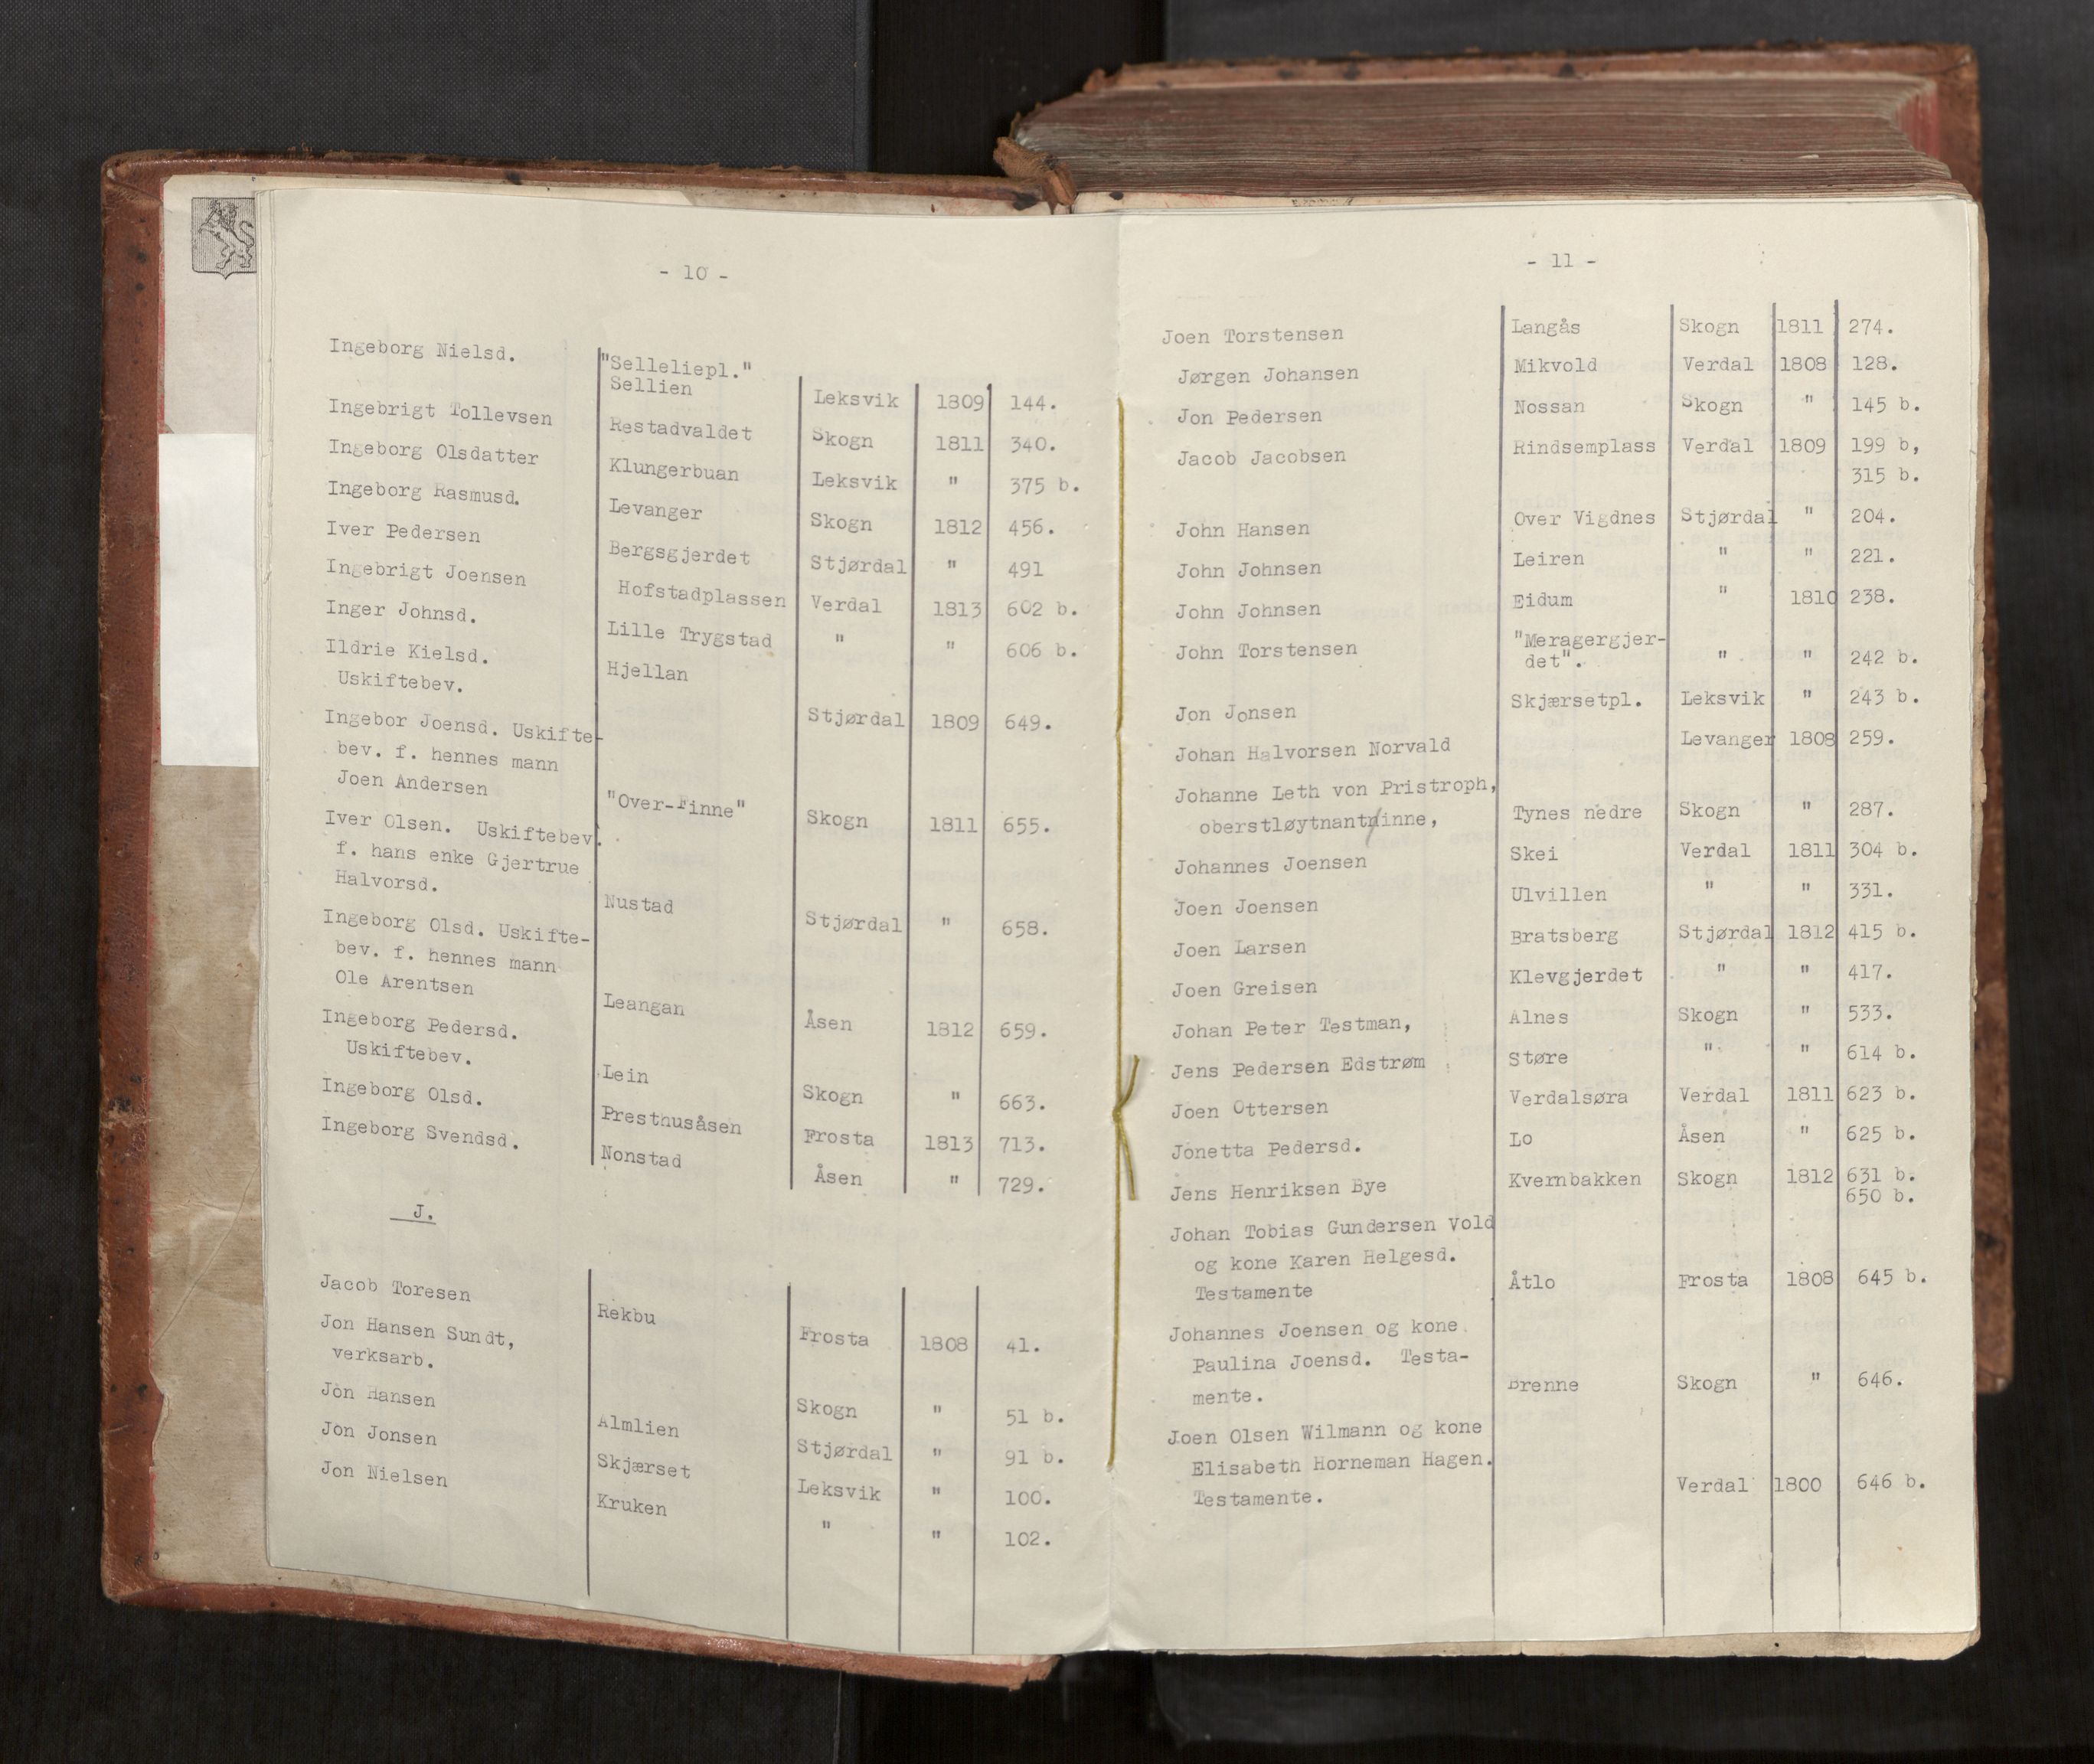 - 10 -
Ingeborg Nielsd. "Selleliepl."
Sellien Leksvik 1809 144.
Ingebrigt Tollevsen Restadvaldet Skogn 1811 340.
Ingeborg Olsdatter Klungerbuan Leksvik " 375 b.
Ingeborg Rasmusd. Levanger Skogn 1812 456.
Iver Pedersen Bergsgjerdet Stjørdal " 491
Ingebrigt Joensen Hofstadplassen Verdal 1813 602 b.
Inger Johnsd. Lille Trygstad " " 606 b.
Ildrie Kielsd. Hjellan
Uskiftebev. Stjørdal 1809 649.
Ingebor Joensd. Uskifte-
bev. f. hennes mann
Joen Andersen "Over-Finne" Skogn 1811 655.
Iver Olsen. Uskiftebev.
f. hans enke Gjertrue
Halvorsd. Nustad Stjørdal " 658.
Ingeborg Olsd. Uskifte-
bev. f. hennes mann
Ole Arentsen Leangan Åsen 1812 659.
Ingeborg Pedersd.
Uskiftebev. Lein Skogn " 663.
Ingeborg Olsd. Presthusåsen Frosta 1813 713.
Ingeborg Svendsd. Nonstad Åsen " 729.
J.
Jacob Toresen Rekbu Frosta 1808 41.
Jon Hansen Sundt,
verksarb. Skogn " 51 b.
Jon Hansen Almlien Stjørdal " 91 b.
Jon Jonsen Skjærset Leksvik " 100.
Jon Nielsen Kruken " " 102.
- 11 -
Joen Torstensen Langås Skogn 1811 274.
Jørgen Johansen Mikvold Verdal 1808 128.
Jon Pedersen Nossan Skogn " 145 b.
Jacob Jacobsen Rindsemplass Verdal 1809 199 b,
315 b.
John Hansen Over Vigdnes Stjørdal " 204.
John Johnsen Leiren " " 221.
John Johnsen Eidum " 1810 238.
John Torstensen "Meragergjer-
det". " " 242 b.
Jon Jonsen Skjærsetpl. Leksvik " 243 b.
Johan Halvorsen Norvald Levanger 1808 259.
Johanne Leth von Pristroph,
oberstløytnantninne, Tynes nedre Skogn " 287.
Johannes Joensen Skei Verdal 1811 304 b.
Joen Joensen Ulvillen " " 331.
Joen Larsen Bratsberg Stjørdal 1812 415 b.
Joen Greisen Klevgjerdet " " 417.
Johan Peter Testman, Alnes Skogn " 533.
Jens Pedersen Edstrøm Støre " " 614 b.
Joen Ottersen Verdalsøra Verdal 1811 623 b.
Jonetta Pedersd. Lo Åsen " 625 b.
Jens Henriksen Bye Kvernbakken Skogn 1812 631 b.
650 b.
Johan Tobias Gundersen Vold
og kone Karen Helgesd.
Testamente Åtlo Frosta 1808 645 b.
Johannes Joensen og kone
Paulina Joensd. Testa-
mente. Brenne Skogn " 646.
Joen Olsen Wilmann og kone
Elisabeth Horneman Hagen.
Testamente. Verdal 1800 646 b.